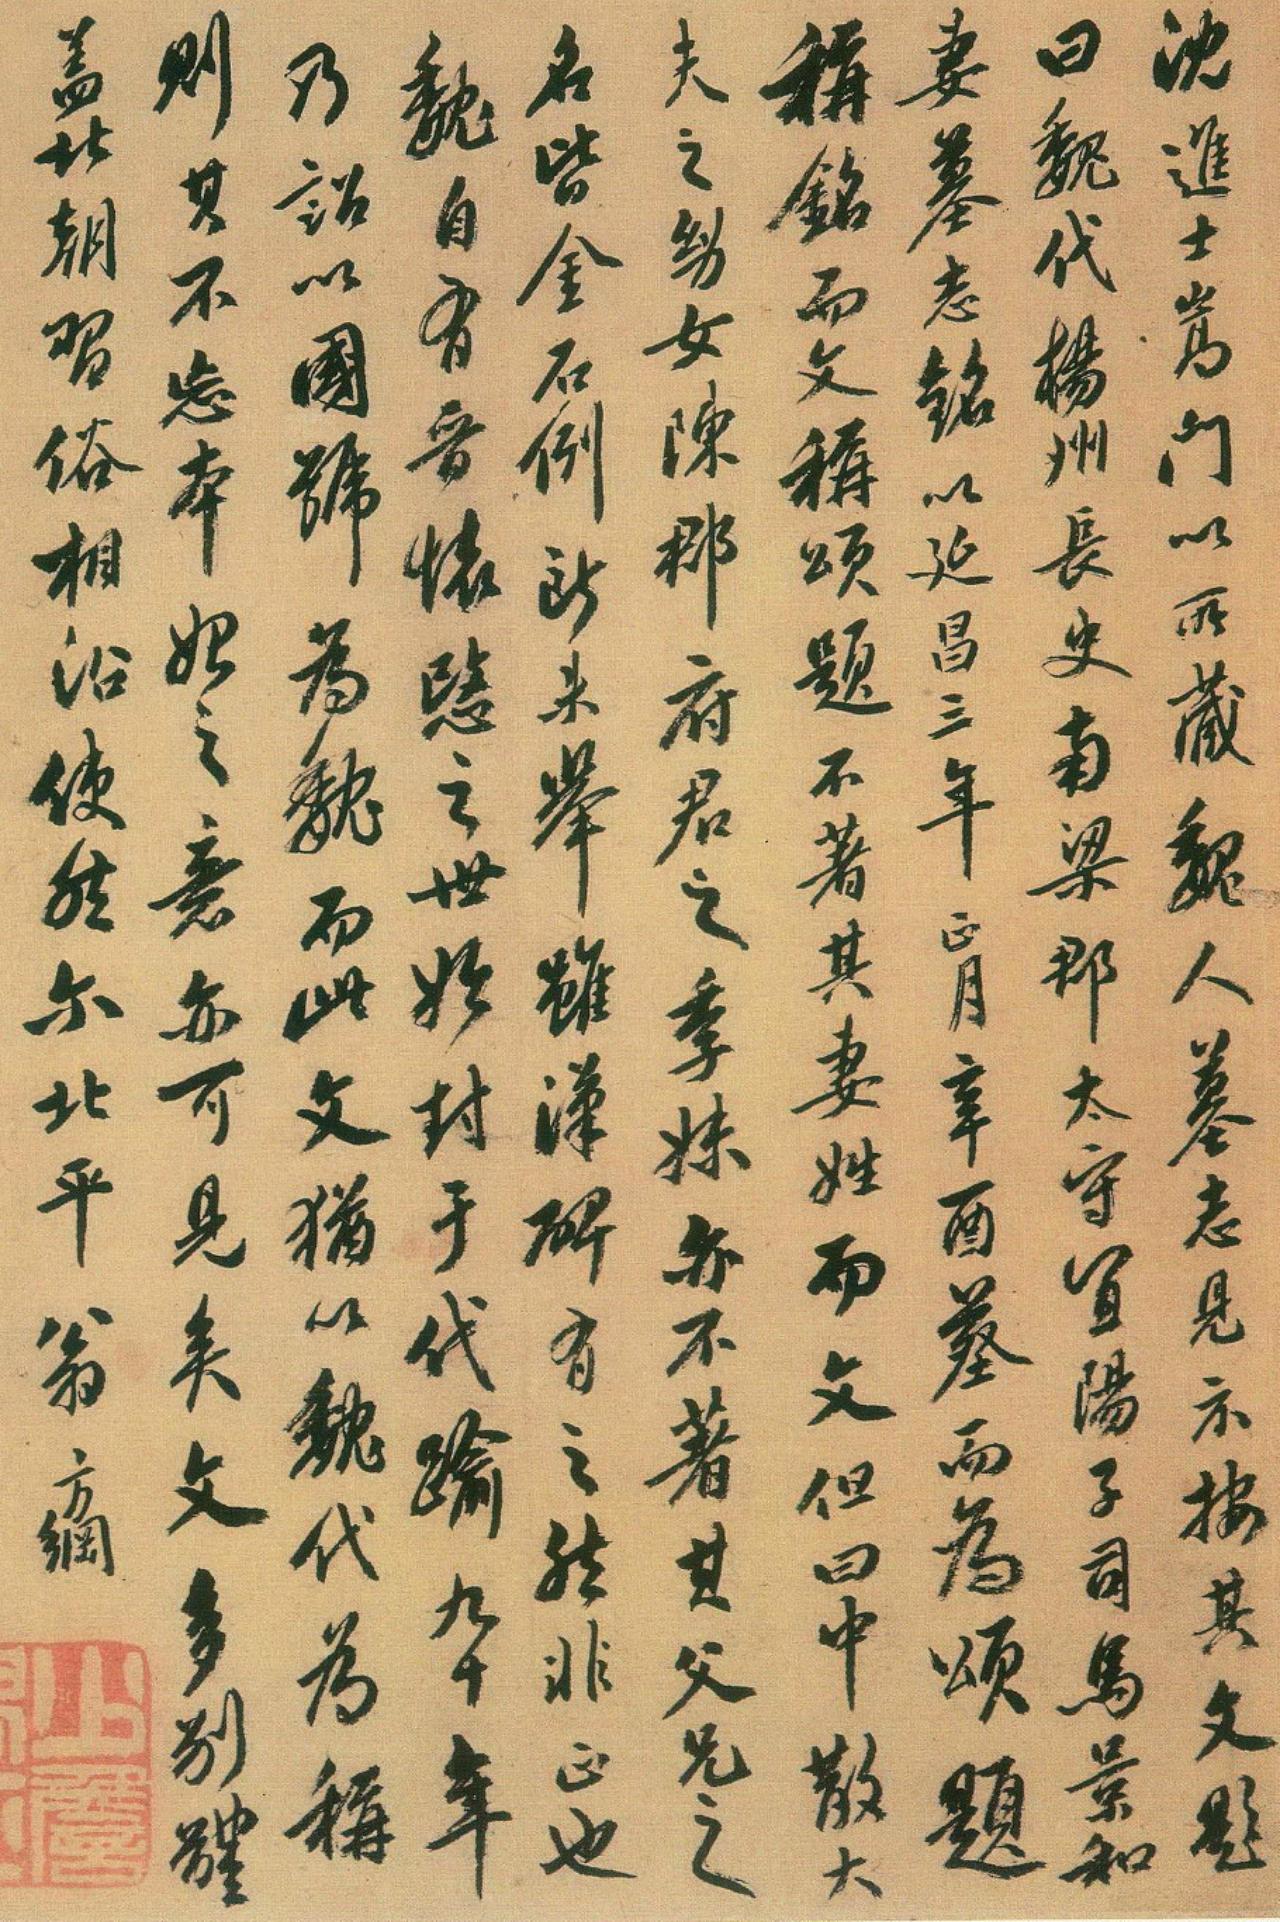 沈進士嵩門以所藏魏人墓志見示按其文題
曰魏代楊州長史南梁郡太守宜陽子司馬景和
妻墓志銘以延昌三年正月辛酉墓而為頌題
稱銘而文稱頌題不著其妻姓而文但曰中散大
夫之幼女陳郡府君之季妹亦不著其父兄之
名皆金石例所未舉雖漢碑有之然非正也
魏自有晉懷愍之世始封于代踰九十年
乃詔以國號為魏而此文猶以魏代為稱
則其不忘本始之意亦可見矣文多別體
蓋北朝習俗相沿使然尔北平翁方綱